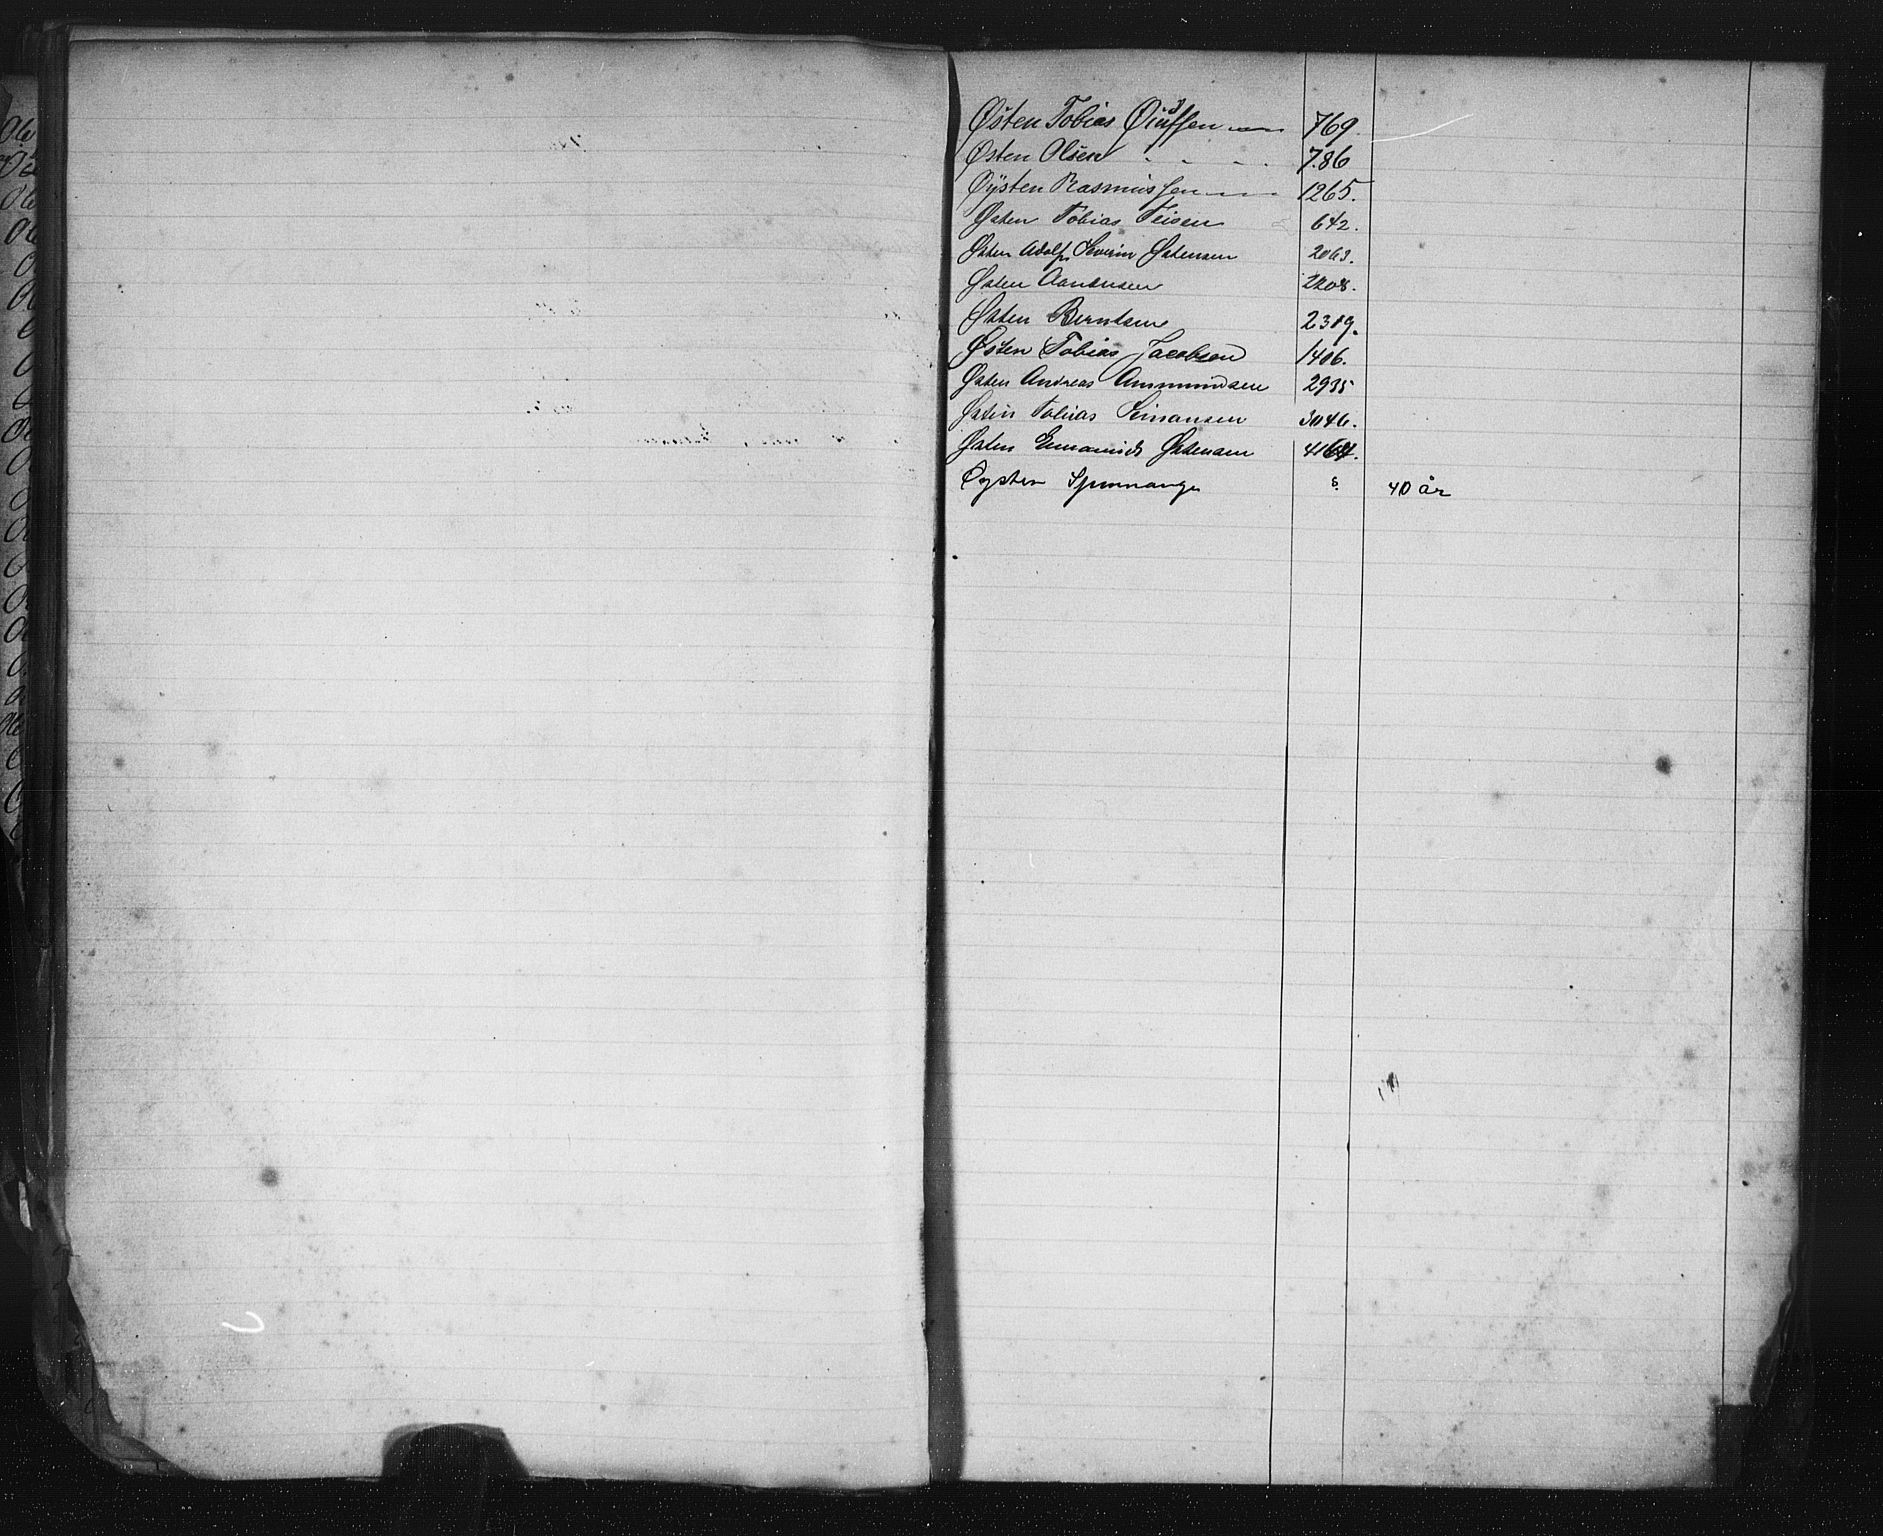 Østen Tobias 769.
Østen Olsen - - - - 786
Øÿsten Rasmussen 1265.
Østen Tobias Teisen 642.
Østen Adolf Severin Østensen 2063.
Østen Aanensen 2208.
Østen Berntsen 2319.
Østen Tobias Jacobsen 1406.
Østen Andreas Ammundsen 2935
Østen Tobias Einansen 3046.
Østen Østensen 4164.
Øysten s. 40 år